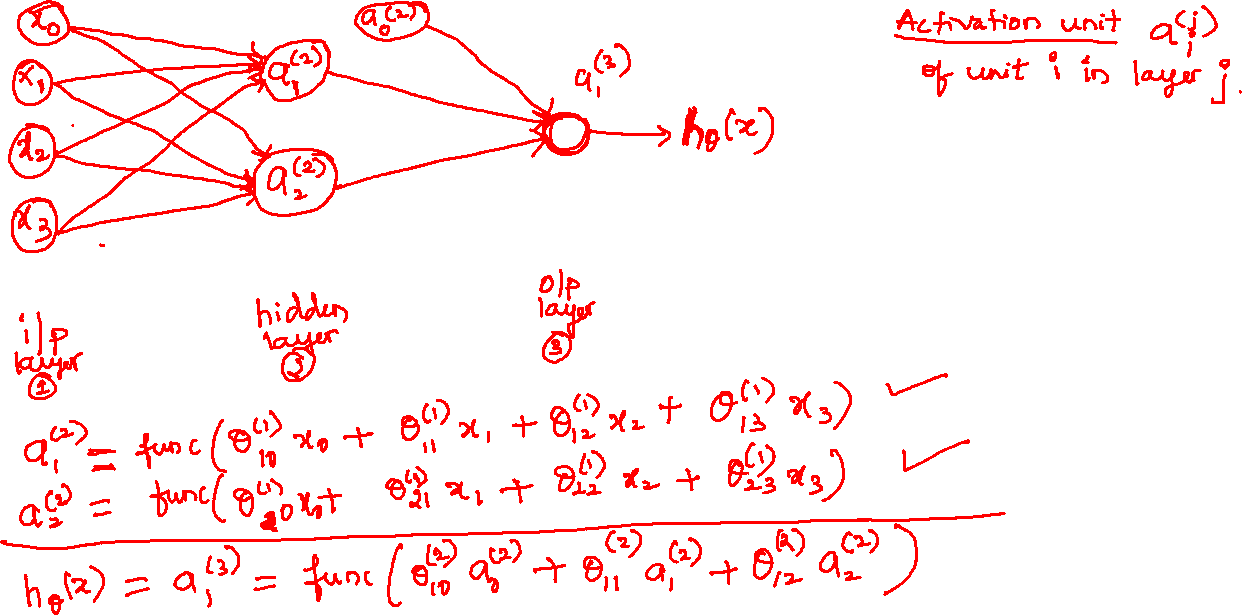 x₀
x₁
x₂
x₃
a₁⁽²⁾
a₂⁽²⁾
a₀⁽²⁾
a₁⁽³⁾
h_θ(x)
Activation unit aᵢ⁽ʲ⁾
of unit i in layer j.
i/p
layer
①
hidden
layer
o/p
layer
③
a₁⁽²⁾ = func(θ₁₀⁽¹⁾ x₀ + θ₁₁⁽¹⁾ x₁ + θ₁₂⁽¹⁾ x₂ + θ₁₃⁽¹⁾ x₃) ✓
a₂⁽²⁾ = func(θ₂₀⁽¹⁾ x₀ + θ₂₁⁽¹⁾ x₁ + θ₂₂⁽¹⁾ x₂ + θ₂₃⁽¹⁾ x₃) ✓
h_θ(x) = a₁⁽³⁾ = func(θ₁₀⁽²⁾ a₀⁽²⁾ + θ₁₁⁽²⁾ a₁⁽²⁾ + θ₁₂⁽²⁾ a₂⁽²⁾)